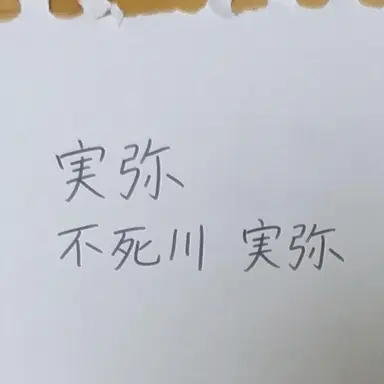 実弥
不死川 実弥